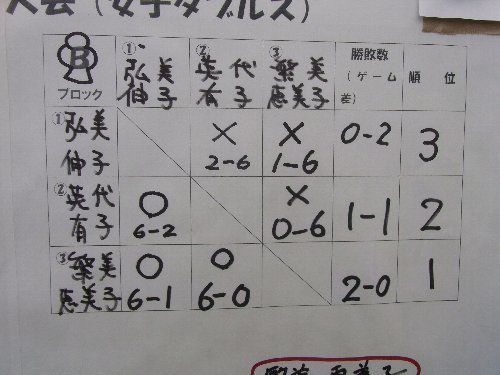 大会 (女子ダブルス)
B
ブロック
① 弘美 伸子
② 英代 有子
③ 繁美 恵美子
勝敗数 (ゲーム差)
順位
① 弘美 伸子
× 2-6
× 1-6
0-2
3
② 英代 有子
○ 6-2
× 0-6
1-1
2
③ 繁美 恵美子
○ 6-1
○ 6-0
2-0
1
恵美子